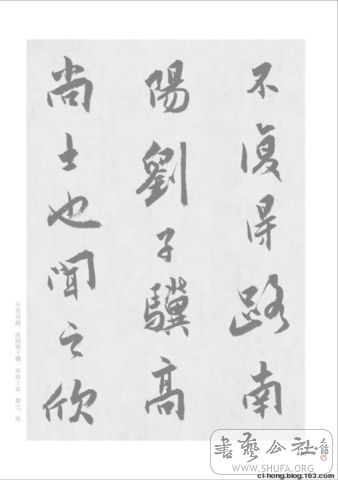 不復得路南
陽劉子驥高
尚士也聞之欣
不復得路。南陽劉子驥，高尚士也，聞之，欣
書藝公社
WWW.SHUFA.ORG
ci-hong.blog.163.com